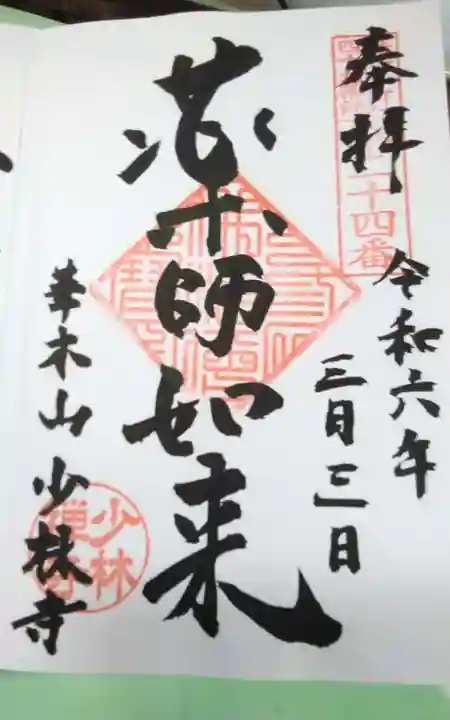 奉拝
二十四番
令和六年
三月三日
薬師如来
華木山 少林寺
少林禅寺